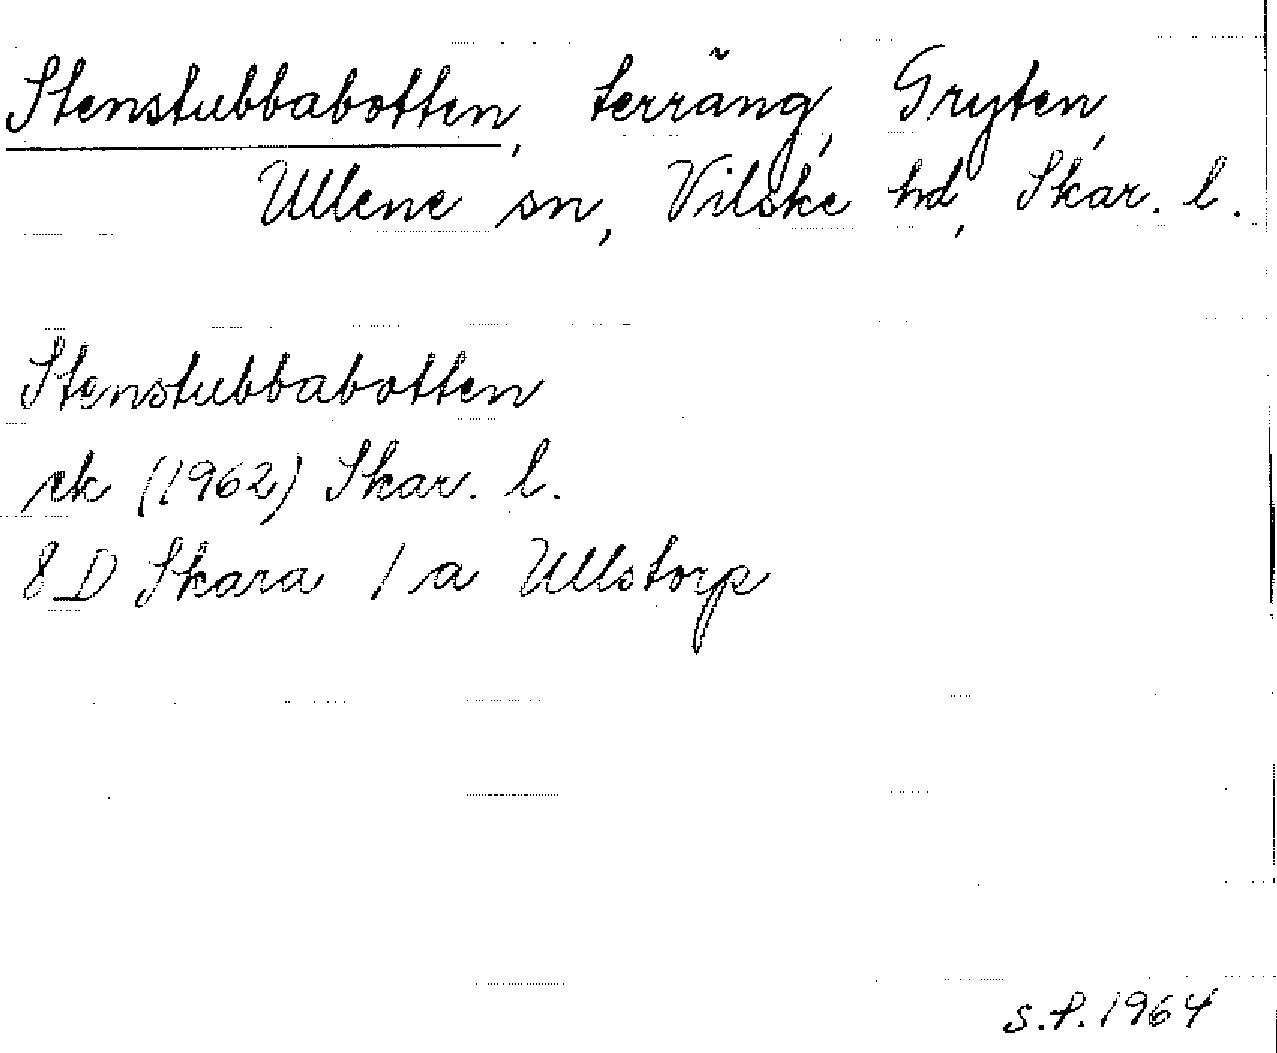 Stenstubbabotten, terräng, Gryten,
Ullene sn, Vilske hd, Skar. l.
Stenstubbabotten
ek (1962) Skar. l.
8 D Skara 1 a Ullstorp
S.P. 1964